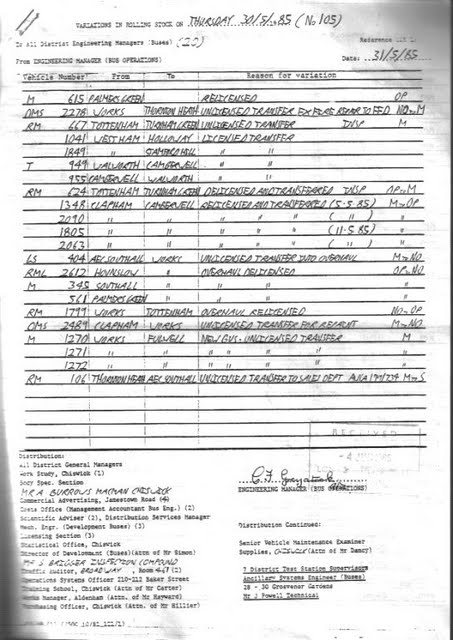 VARIATIONS IN ROLLING STOCK ON THURSDAY 30/5/85 (No 105)
To All District Engineering Managers (Buses) (20) Reference
From ENGINEERING MANAGER (BUS OPERATIONS) Date: 31/5/85
Vehicle Number From To Reason for variation
M 615 PALMERS GREEN RELICENSED OP
DMS 2278 WORKS THORNTON HEATH UNLICENSED TRANSFER EX FIRE REPAIR TO FFD NO→M
RM 667 TOTTENHAM TURNHAM GREEN UNLICENSED TRANSFER INSP M
1041 WEST HAM HOLLOWAY LICENSED TRANSFER
1849 " STAMFORD HILL " "
T 949 WALWORTH CAMBERWELL " "
955 CAMBERWELL WALWORTH " "
RM 624 TOTTENHAM TURNHAM GREEN DELICENSED AND TRANSFERRED INSP OP→M
1348 CLAPHAM CAMBERWELL RELICENSED AND TRANSFERRED (5.5.85) M→OP
2090 " " " " " ( " ) "
1805 " " " " " (11.5.85) "
2063 " " " " " ( " ) "
LS 404 AEC SOUTHALL WORKS UNLICENSED TRANSFER INTO OVERHAUL M→NO
RML 2612 HOUNSLOW " OVERHAUL DELICENSED OP→NO
M 345 SOUTHALL " " " "
561 PALMERS GREEN " " " "
RM 1799 WORKS TOTTENHAM OVERHAUL RELICENSED NO→OP
DMS 2489 CLAPHAM WORKS UNLICENSED TRANSFER FOR REPAINT M→NO
M 1270 WORKS FULWELL NEW GVS. UNLICENSED TRANSFER M
1271 " " " " " " "
1272 " " " " " " "
RM 106 THORNTON HEATH AEC SOUTHALL UNLICENSED TRANSFER TO SALES DEPT M→S
RECEIVED
Distribution:
All District General Managers
Work Study, Chiswick (1)
Body Spec. Section
MR A BURROWS MACMAN CHISWICK
Commercial Advertising, Jamestown Road (4)
Costs Office (Management Accountant Bus Eng.) (2)
Scientific Adviser (2), Distribution Services Manager
Mech. Engr. (Development Buses) (3)
Licensing Section (3)
Statistical Office, Chiswick
Director of Development (Buses)(Attn of Mr Simon)
MR S BRIDGER INSPECTION COMPOUND
Traffic Auditor, BROADWAY Room 647 (2)
Operations Systems Officer 210-212 Baker Street
Training School, Chiswick (Attn of Mr Carter)
Works Manager, Aldenham (Attn of Mr Hayward)
Purchasing Officer, Chiswick (Attn of Mr Hillier)
ENGINEERING MANAGER (BUS OPERATIONS)
Distribution Continued:
Senior Vehicle Maintenance Examiner
Supplies, CHISWICK (Attn of Mr Dancy)
7 District Test Station Supervisors
Ancillary Systems Engineer (Buses)
28 - 30 Grosvenor Gardens
Mr J Powell Technical